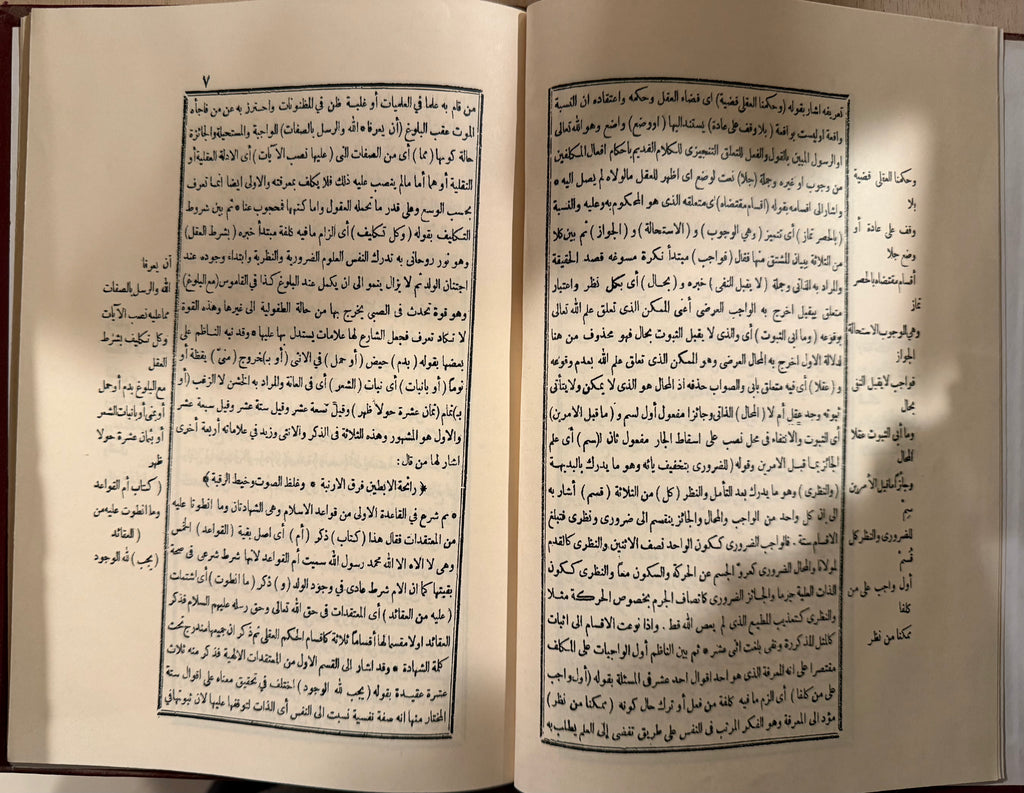 تعريفه اشار بقوله (وحكمنا العقلى قضية) اى قضاء العقل وحكمه واعتقاده ان النسبة
واقعة اوليست بواقعة (بلا وقف على عادة) يستنداليها (اووضع) واضع وهو الله تعالى
او الرسول المبين بالقول والفعل للتعلق التنجيزى للكلام القديم بأحكام افعال المكلفين
من وجوب او غيره وجملة (جلا) نعت لوضع اى اظهر للعقل مالولاه لم يصل اليه *
واشار الى اقسامه بقوله (اقسام مقتضاه) اى متعلقه الذى هو المحكوم به وعليه والنسبة
(بالحصر تماز) أى تتميز (وهى الوجوب) و (الاستحالة) و (الجواز) ثم بين كلا
من الثلاثة ببيان المشتق منها فقال (فواجب) مبتدأ نكرة مسوغه قصد الحقيقة
والمراد به الذاتى وجملة (لا يقبل النفى) خبره و (بحال) أى بكل نظر واعتبار
متعلق بيقبل اخرج به الواجب العرضى أعنى الممكن الذى تعلق علم الله تعالى
بوقوعه (وما ابى الثبوت) أى والذى لا يقبل الثبوت بحال فهو محذوف من هنا
لدلالة الاول اخرج به المحال العرضى وهو الممكن الذى تعلق علم الله بعدم وقوعه
و (عقلا) أى فيه متعلق بابى والصواب حذفه اذ المحال هو الذى لا يمكن ولا يتأتى
ثبوته وجد عقل أم لا (المحال) الذاتى وجائزا مفعول أول لسم و (ما قبل الامرين)
أى الثبوت والانتفاء فى محل نصب على اسقاط الجار مفعول ثان ا(سم) أى علم
الجائز بما قبل الامرين وقوله (للضرورى بتخفيف يائه وهو ما يدرك بالبديهة
(والنظرى) وهو ما يدرك بعد التأمل والنظر (كل) من الثلاثة (قسم) أشار به
الى ان كل واحد من الواجب والمحال والجائز ينقسم الى ضرورى ونظرى فتبلغ
الاقسام ستة . فالواجب الضرورى ككون الواحد نصف الاثنين والنظرى كالقدم
لمولانا والمحال الضرورى كعرو الجسم عن الحركة والسكون معا والنظرى ككون
الذات العلية جرما والجائز الضرورى كاتصاف الجرم بخصوص الحركة مثلا
والنظرى كتعذيب المطيع الذى لم يعص الله قط . واذا نوعت الاقسام الى اثبات
كالمثل المذكورة ونفى بلغت اثنى عشر * ثم بين الناظم أول الواجبات على المكلف
مقتصرا على انه المعرفة الذى هو احد اقوال احد عشر فى المسئلة بقوله (أول واجب
على من كلفا) أى الزم ما فيه كلفة من فعل أو ترك حال كونه (ممكنا من نظر)
مؤد الى المعرفة وهو الفكر المرتب فى النفس على طريق تفضى إلى العلم يطلب به
وحكمنا العقلى قضية
بلا
وقف على عادة أو
وضع جلا
أقسام مقتضاه بالحصر
تماز
وهى الوجوب الاستحالة
الجواز
فواجب لا يقبل النفى
بحال
وما أبى الثبوت عقلا
المحال
وجائزا ما قبل الأمرين
سم
للضرورى والنظر كل
قسم
أول واجب على من
كلفا
ممكنا من نظر
٧
من قام به علما فى العلميات أو غلبة ظن فى المظنونات واحترز به عن من فاجأه
الموت عقب البلوغ (أن يعرفا * الله والرسل بالصفات) الواجبة والمستحيلة والجائزة
حالة كونها (مما) أى من الصفات التى (عليها نصب الآيات) أى الادلة العقلية أو
النقلية أو هما أما مالم ينصب عليه ذلك فلا يكلف بمعرفته والاولى ايضا انما تعرف
بحسب الوسع وعلى قدر ما تحمله العقول واما كنهها فمحجوب عنا * ثم بين شروط
التكليف بقوله (وكل تكليف) أى الزام مافيه كلفة مبتدأ خبره (بشرط العقل)
وهو نور روحانى به تدرك النفس العلوم الضرورية والنظرية وابتداء وجوده عند
اجتنان الولد ثم لا يزال ينمو الى ان يكمل عند البلوغ كذا فى القاموس (مع البلوغ)
وهو قوة تحدث فى الصبى يخرج بها من حالة الطفولية الى غيرها وهذه القوة
لا تكاد تعرف فجعل الشارع لها علامات يستدل بها عليها * وقد نبه الناظم على
بعضها بقوله (بدم) حيض (أو حمل) فى الانثى (أو ب)خروج (منى) يقظة أو
نوما (أو بانبات) أى نبات (الشعر) أى فى العانة والمراد به الخشن لا الزغب (أو
ب)تمام (ثمان عشرة حولا ظهر) وقيل تسعة عشر وقيل ستة عشر وقيل سبعة عشر
والاول هو المشهور وهذه الثلاثة فى الذكر والانثى وزيد فى علاماته أربعة أخرى
اشار لها من قال :
﴿ رائحة الابطين فرق الارنبة * وغلظ الصوت وخيط الرقبة ﴾
* ثم شرع فى القاعدة الاولى من قواعد الاسلام وهى الشهادتان وما انطوتا عليه
من المعتقدات فقال هذا (كتاب) ذكر (أم) أى اصل بقية (القواعد) الخمس
وهى لا اله الا الله محمد رسول الله سميت أم القواعد لانها شرط شرعى فى صحة
بقيتها كما ان الام شرط عادى فى وجود الولد (و) ذكر (ما انطوت) أى اشتملت
(عليه من العقائد) أى المعتقدات فى حق الله تعالى وحق رسله عليهم السلام فذكر
العقائد اولا مقسما لها أقساما ثلاثة كاقسام الحكم العقلى ثم ذكر ان جميعها مندرج تحت
كلمة الشهادة * وقد اشار الى القسم الاول من المعتقدات الالهية فذكر منه ثلاث
عشرة عقيدة بقوله (يجب لله الوجود) اختلف فى تحقيق معناه على اقوال ستة
المختار منها انه صفة نفسية نسبت الى النفس أى الذات لتوقفها عليها لان ثبوتها فى
أن يعرفا
الله والرسل بالصفات
مما عليه نصب الآيات
وكل تكليف بشرط
العقل
مع البلوغ بدم أو حمل
أو بمنى أو بانبات الشعر
أو بثمان عشرة حولا
ظهر
(كتاب أم القواعد
وما انطوت عليه من
العقائد)
(يجب) لله الوجود